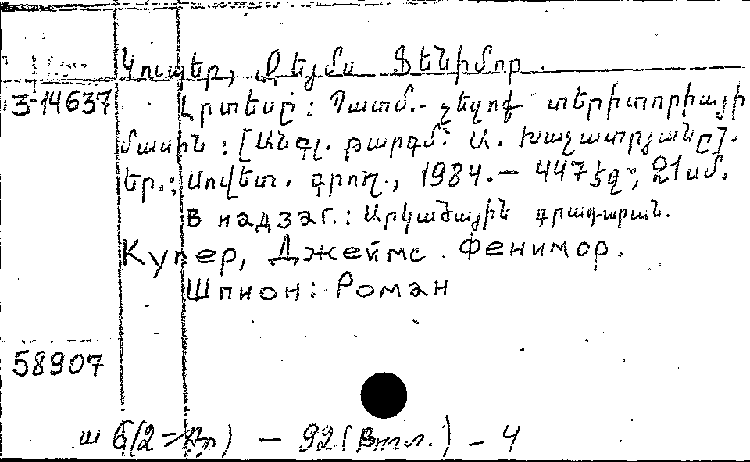 Կուպեր, Ջեյմս Ֆենիմոր.
3-14637 Լրտեսը: Պատմ.- չեզոք տերիտորիայի
մասին: [Անգլ. թարգմ. Ա. Խաչատրյանը].-
Եր.: Սովետ. գրող., 1984.— 447 էջ; 21 սմ.
В надзаг.: Արկածային գրադարան.
Купер, Джеймс Фенимор.
Шпион: Роман
58907
— 92 ( ) — 4